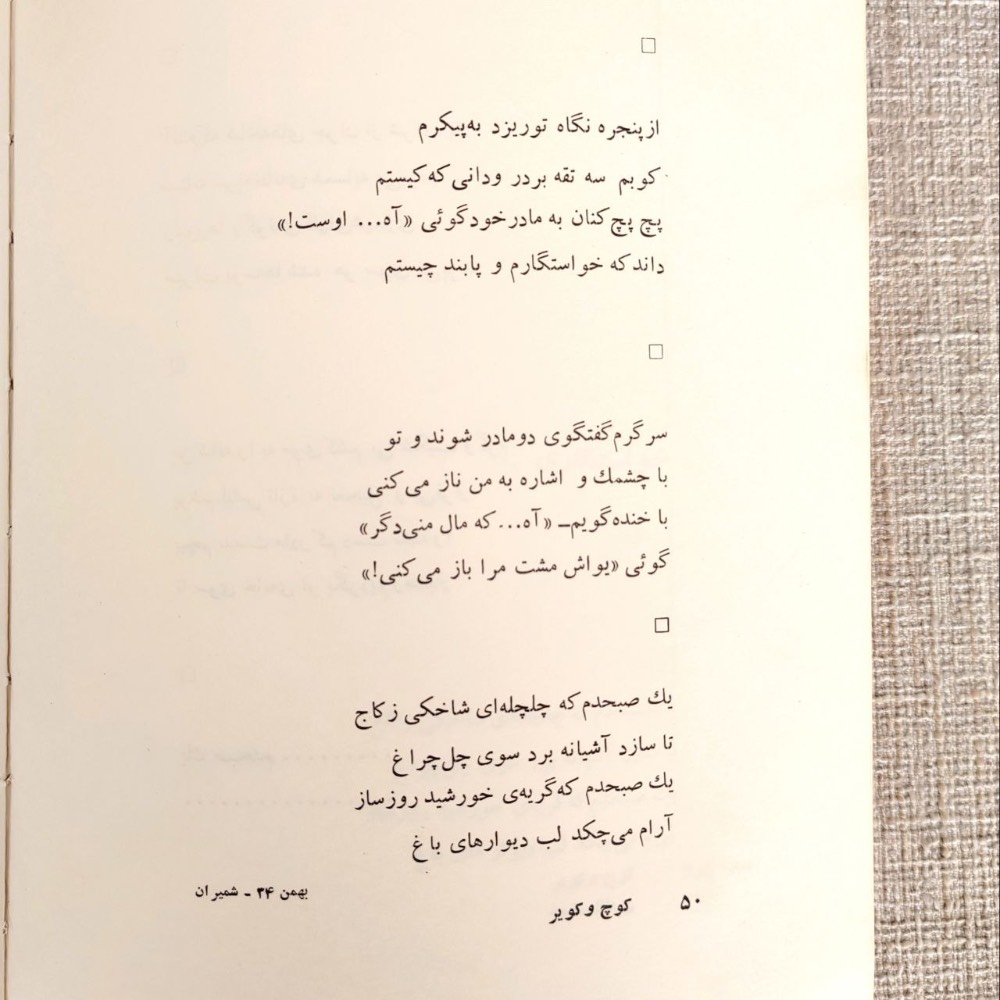 از پنجره نگاه تو ریزد به‌پیکرم
کوبم سه تقه بر در ودانی که کیستم
پچ پچ کنان به مادر خود گوئی «آه... اوست!»
داند که خواستگارم و پابند چیستم
سرگرم گفتگوی دو مادر شوند و تو
با چشمك و اشاره به من ناز می‌کنی
با خنده گویم ـ «آه... که مال منی دگر»
گوئی «یواش مشت مرا باز می‌کنی!»
یك صبحدم که چلچله‌ای شاخکی ز کاج
تا سازد آشیانه برد سوی چل‌چراغ
یك صبحدم که گریه‌ی خورشید روز ساز
آرام می‌چکد لب دیوارهای باغ
بهمن ۳۴ - شمیران
۵۰ کوچ و کویر